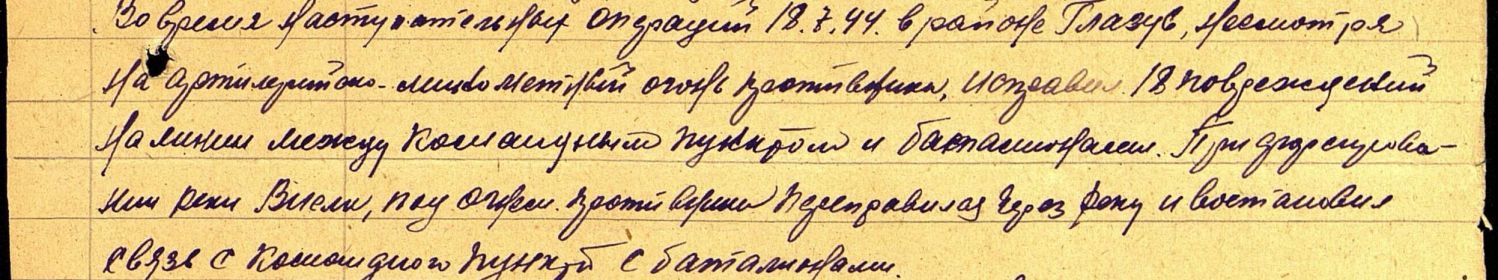 Во время наступательных операций 18.7.44. в районе Глазув, несмотря
на артилерийско-минометный огонь противника, исправил 18 повреждений
на линии между командным пунктом и баталионами. При форсирова-
нии реки Висла, под огнем противника переправился через реку и востановил
связь с командного пункта с баталионами.